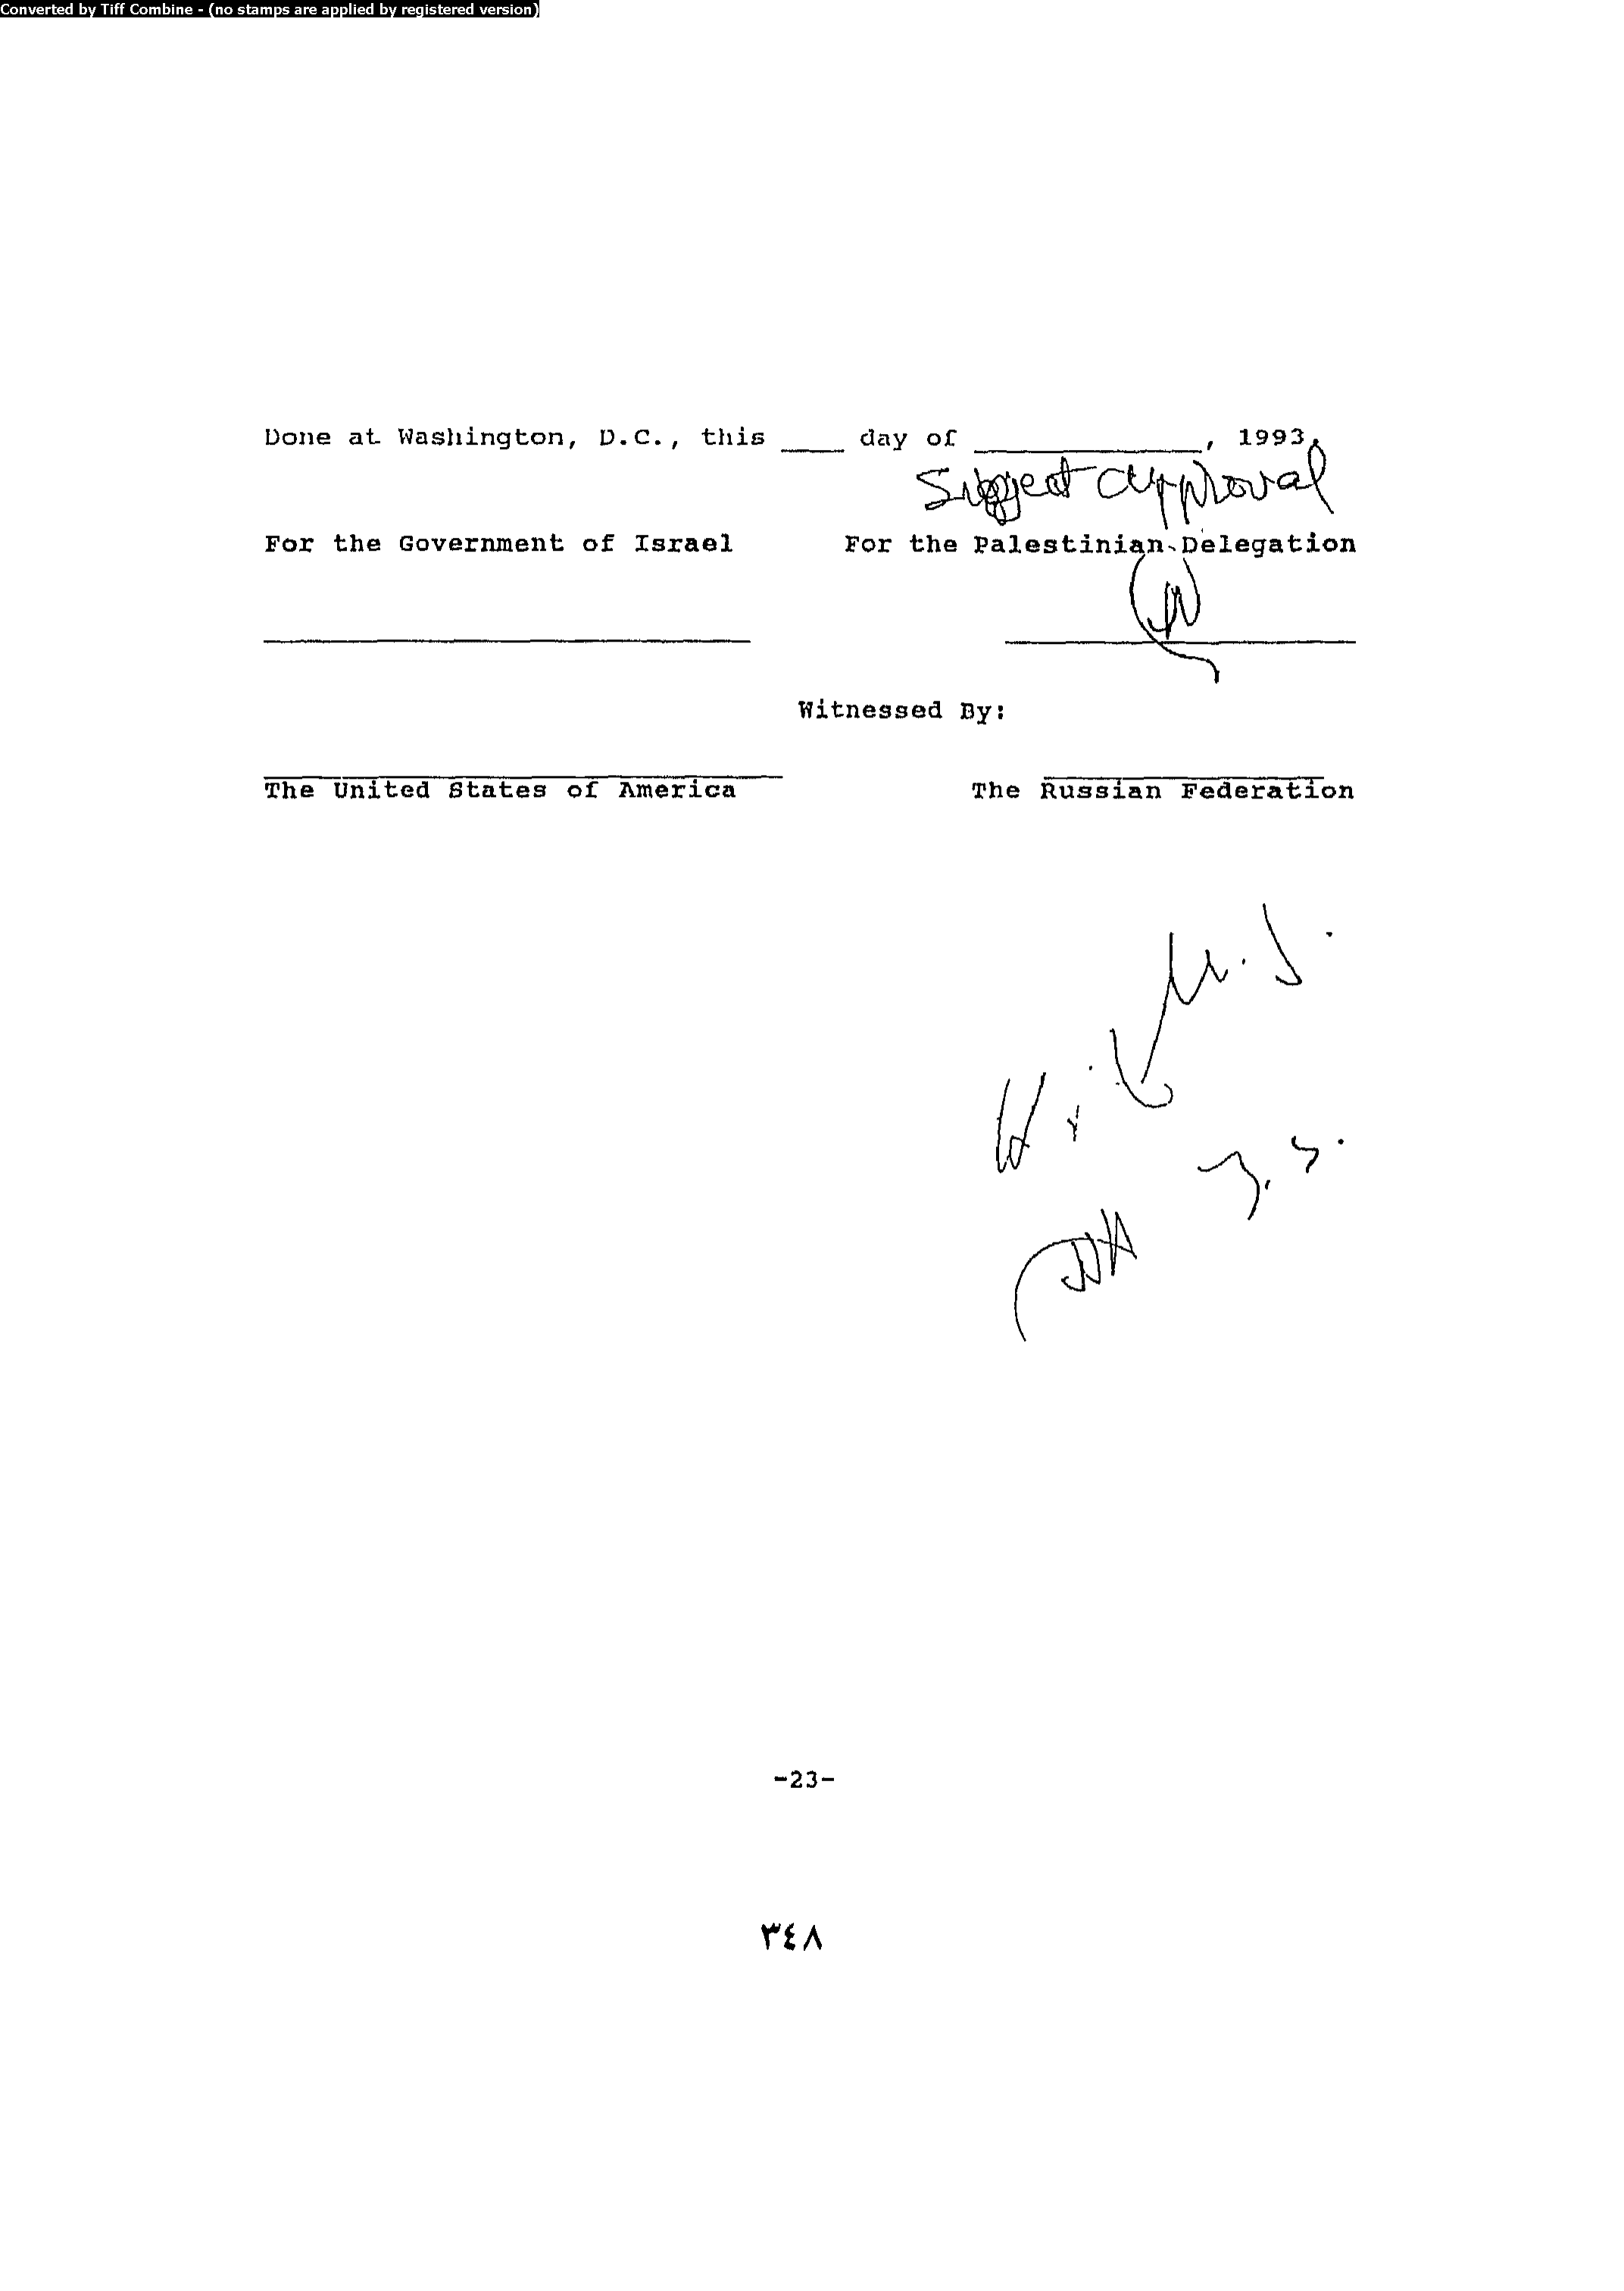 Converted by Tiff Combine - (no stamps are applied by registered version)
Done at Washington, D.C., this ____ day of _______________, 1993.
Subject approval
For the Government of Israel For the Palestinian Delegation
Witnessed By:
The United States of America The Russian Federation
-23-
٣٤٨